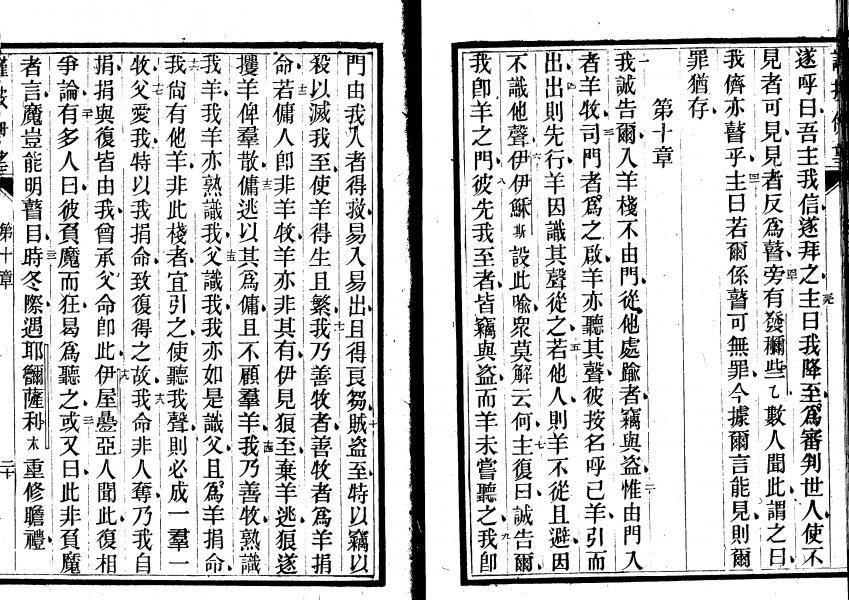 遂呼曰吾主我信遂拜之主曰我降至爲審判世人使不
見者可見見者反爲瞽旁有發彌些乙數人聞此謂之曰
我儕亦瞽乎主曰若爾係瞽可無罪今據爾言能見則爾
罪猶存
第十章
我誠告爾入羊棧不由門從他處踰者竊與盜惟由門入
者羊牧司門者爲之啟羊亦聽其聲彼按名呼己羊引而
出出則先行羊因識其聲從之若他人則羊不從且避因
不識他聲伊伊穌斯設此喻衆莫解云何主復曰誠告爾
我卽羊之門彼先我至者皆竊與盜而羊未嘗聽之我卽
門由我入者得救易入易出且得良芻賊盜至特以竊以
殺以滅我至使羊得生且繁我乃善牧者善牧者爲羊捐
命若傭人卽非羊牧羊亦非其有伊見狼至棄羊逃狼遂
攫羊俾羣散傭逃以其爲傭且不顧羣羊我乃善牧熟識
我羊我羊亦熟識我父識我我亦如是識父且爲羊捐命
我尙有他羊非此棧者宜引之使聽我聲則必成一羣一
牧父愛我特以我捐命致復得之故我命非人奪乃我自
捐捐與復皆由我曾承父命卽此伊屋疊亞人聞此復相
爭論有多人曰彼負魔而狂曷爲聽之或又曰此非負魔
者言魔豈能明瞽目時冬際遇耶彌薩利木重修瞻禮
第十章
二十